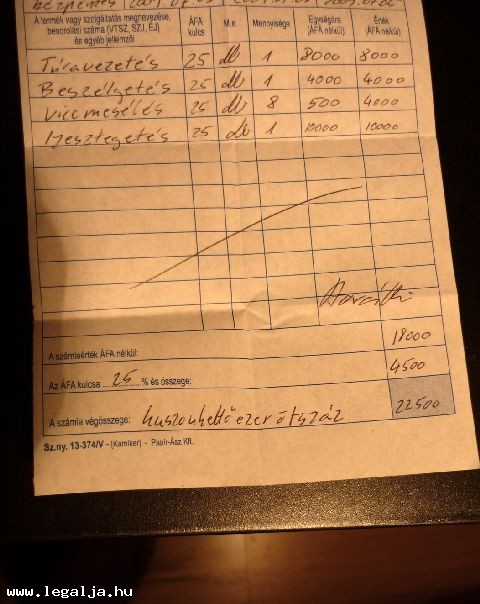 A termék vagy szolgáltatás megnevezése, besorolási száma (VTSZ, SZJ, ÉJ) és egyéb jellemzői ÁFA kulcs M.e. Mennyisége Egységára (ÁFA nélkül) Érték (ÁFA nélkül)
Túravezetés 25 db 1 8000 8000
Beszélgetés 25 db 1 4000 4000
Viccmesélés 25 db 8 500 4000
Ijesztegetés 25 db 1 10000 10000
A számlaérték ÁFA nélkül: 18000
Az ÁFA kulcsa 25 % és összege: 4500
A számla végösszege: huszonkettőezerötszáz 22500
Sz.ny. 13-374/V - (Karniker) - Papír-Ász Kft.
www.legalja.hu